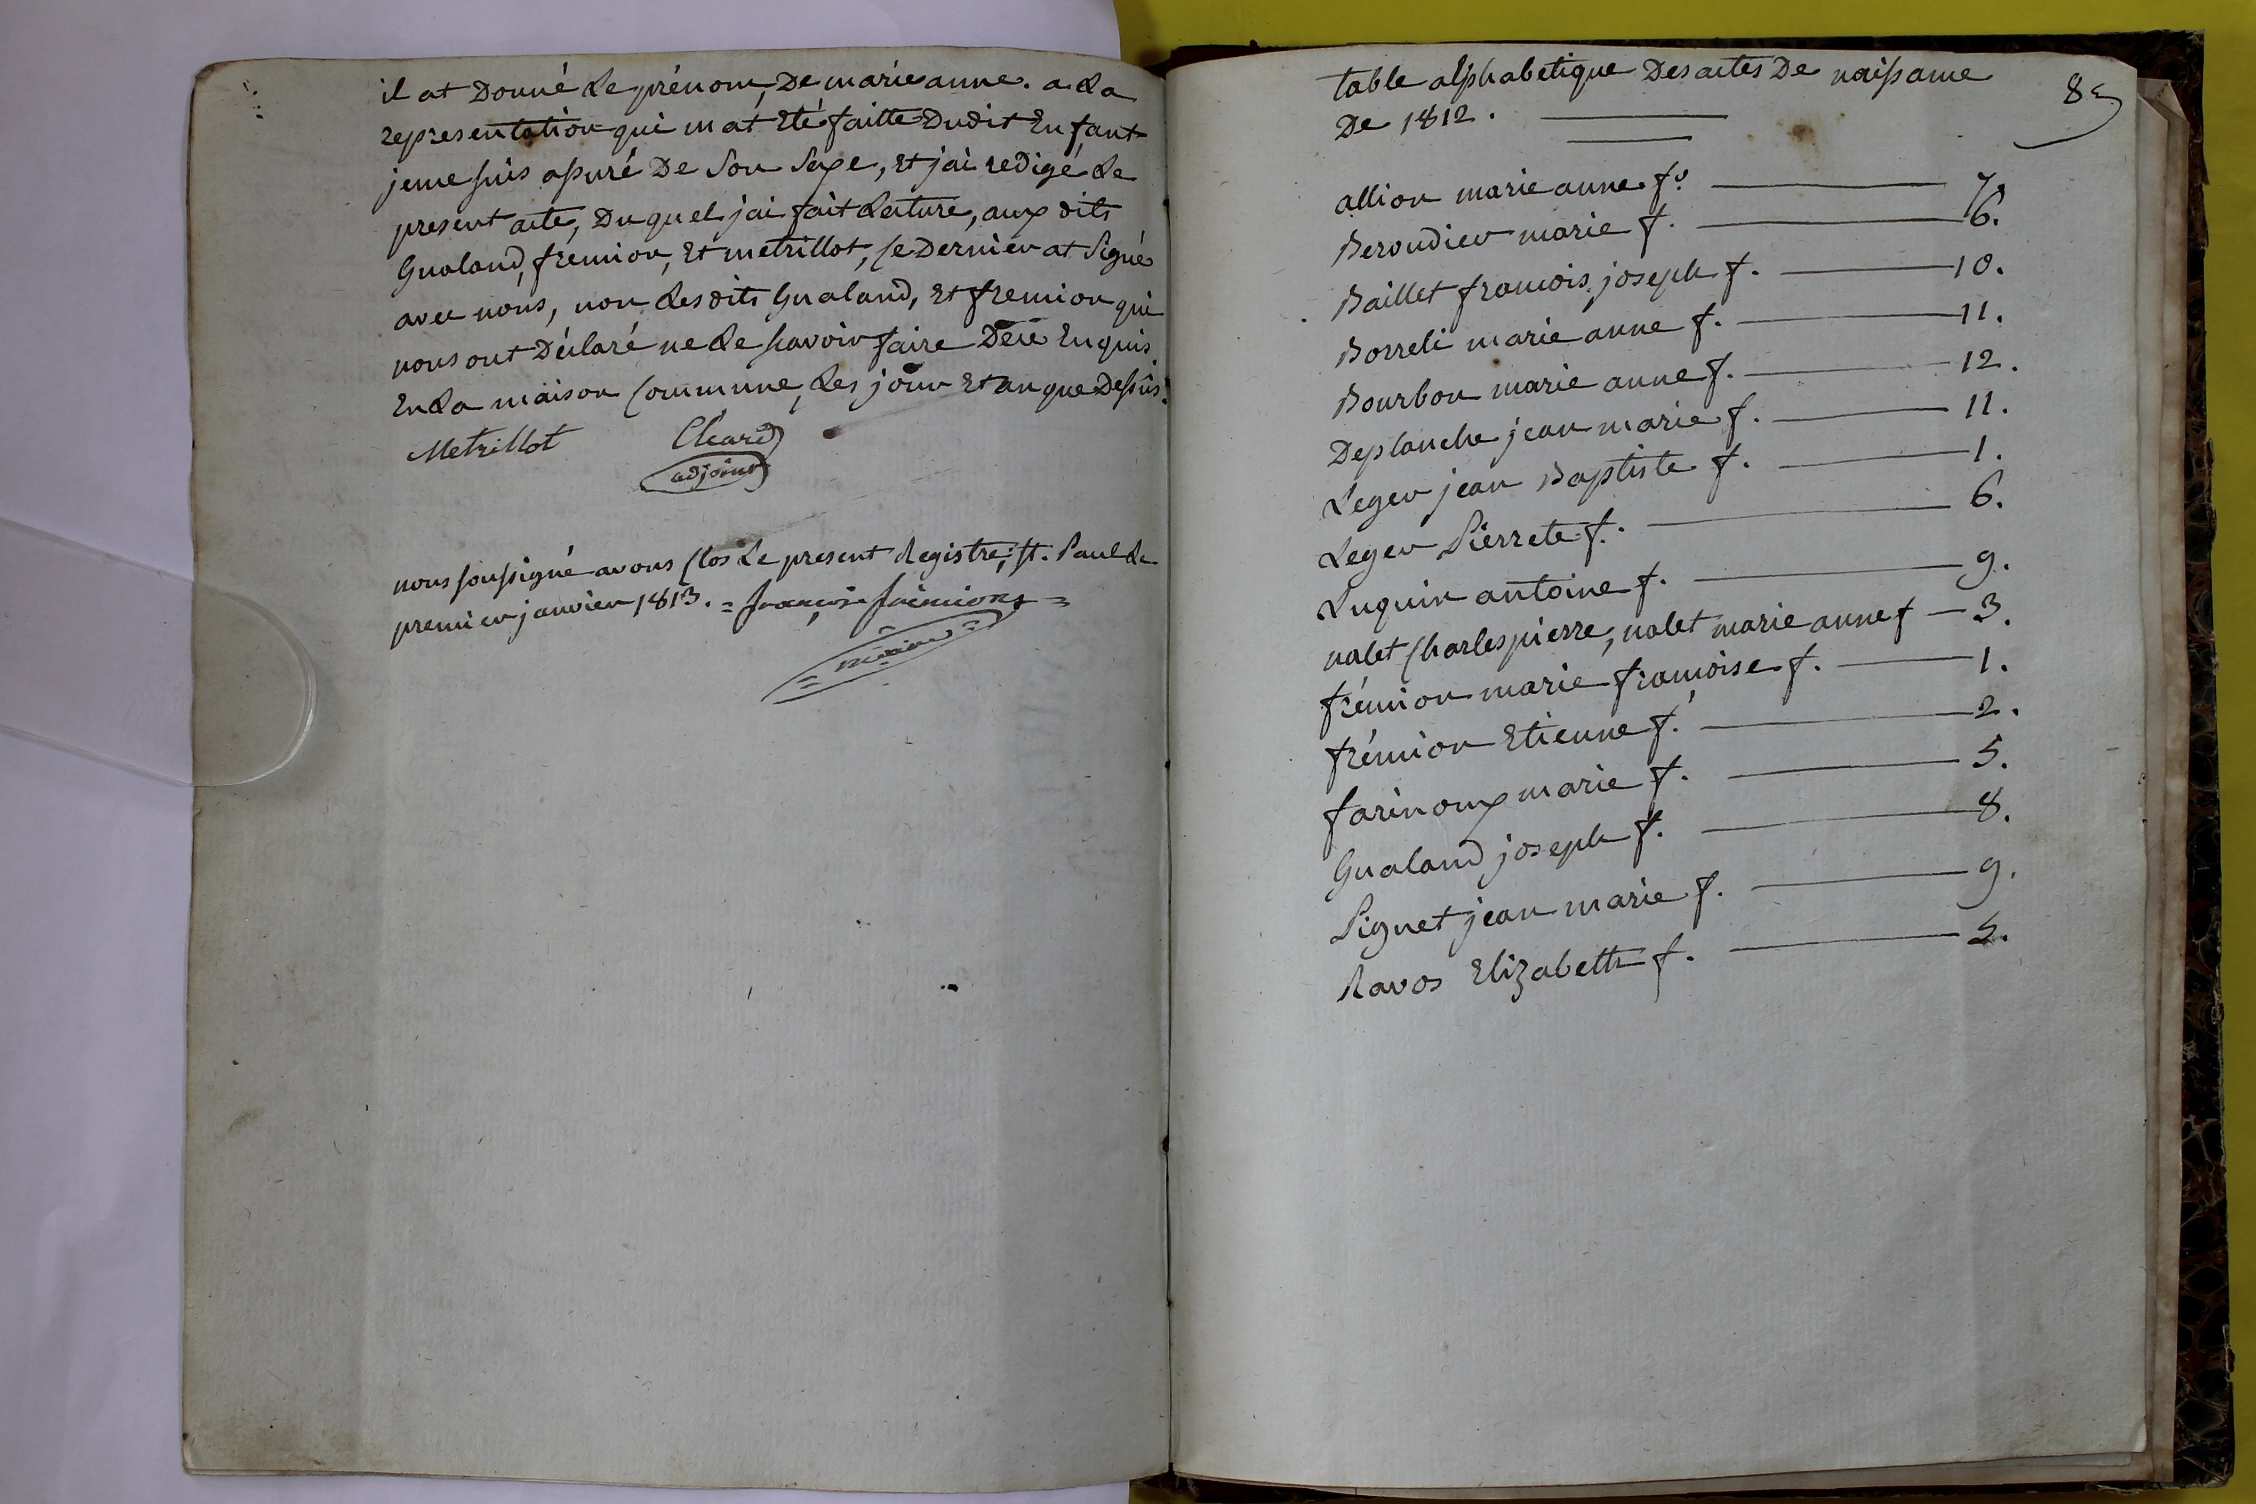 il at Donné Le prénom, De marie anne. a La
representation qui m'at Eté faitte Dudit Enfant
je me suis assuré De Son Sexe, Et j'ai redigé Le
present acte, Duquel j'ai fait Lecture, aux dits
Gualand, frémion, Et metrillot, Ce Dernier at Signé
avec nous, non Lesdits Gualand, Et fremion qui
nous ont Déclaré ne Le scavoir faire De ce Enquis
En La maison Commune, Les jour Et an que Dessus.
Metrillot Cleard
adjoint
nous soussigné avons Clos Le present Registre, st. Paul Le
premier janvier 1813. = françois frémion =
maire
table alphabetique Des actes De naissance
De 1812.
8
allion marie anne f.o 7.
Beroudier marie f. 6.
Baillet francois joseph f. 10.
Borreli marie anne f. 11.
Bourbon marie anne f. 12.
Deplanche jean marie f. 11.
Leger jean Baptiste f. 1.
Leger Pierrete f. 6.
Luquin antoine f. 9.
nalet Charles pierre, nalet marie anne f 3.
frémion marie francoise f. 1.
frémion Etienne f. 2.
farinoux marie f. 5.
Gualand joseph f. 8.
Pignet jean marie f. 9.
Ravos Elizabeth f. 5.